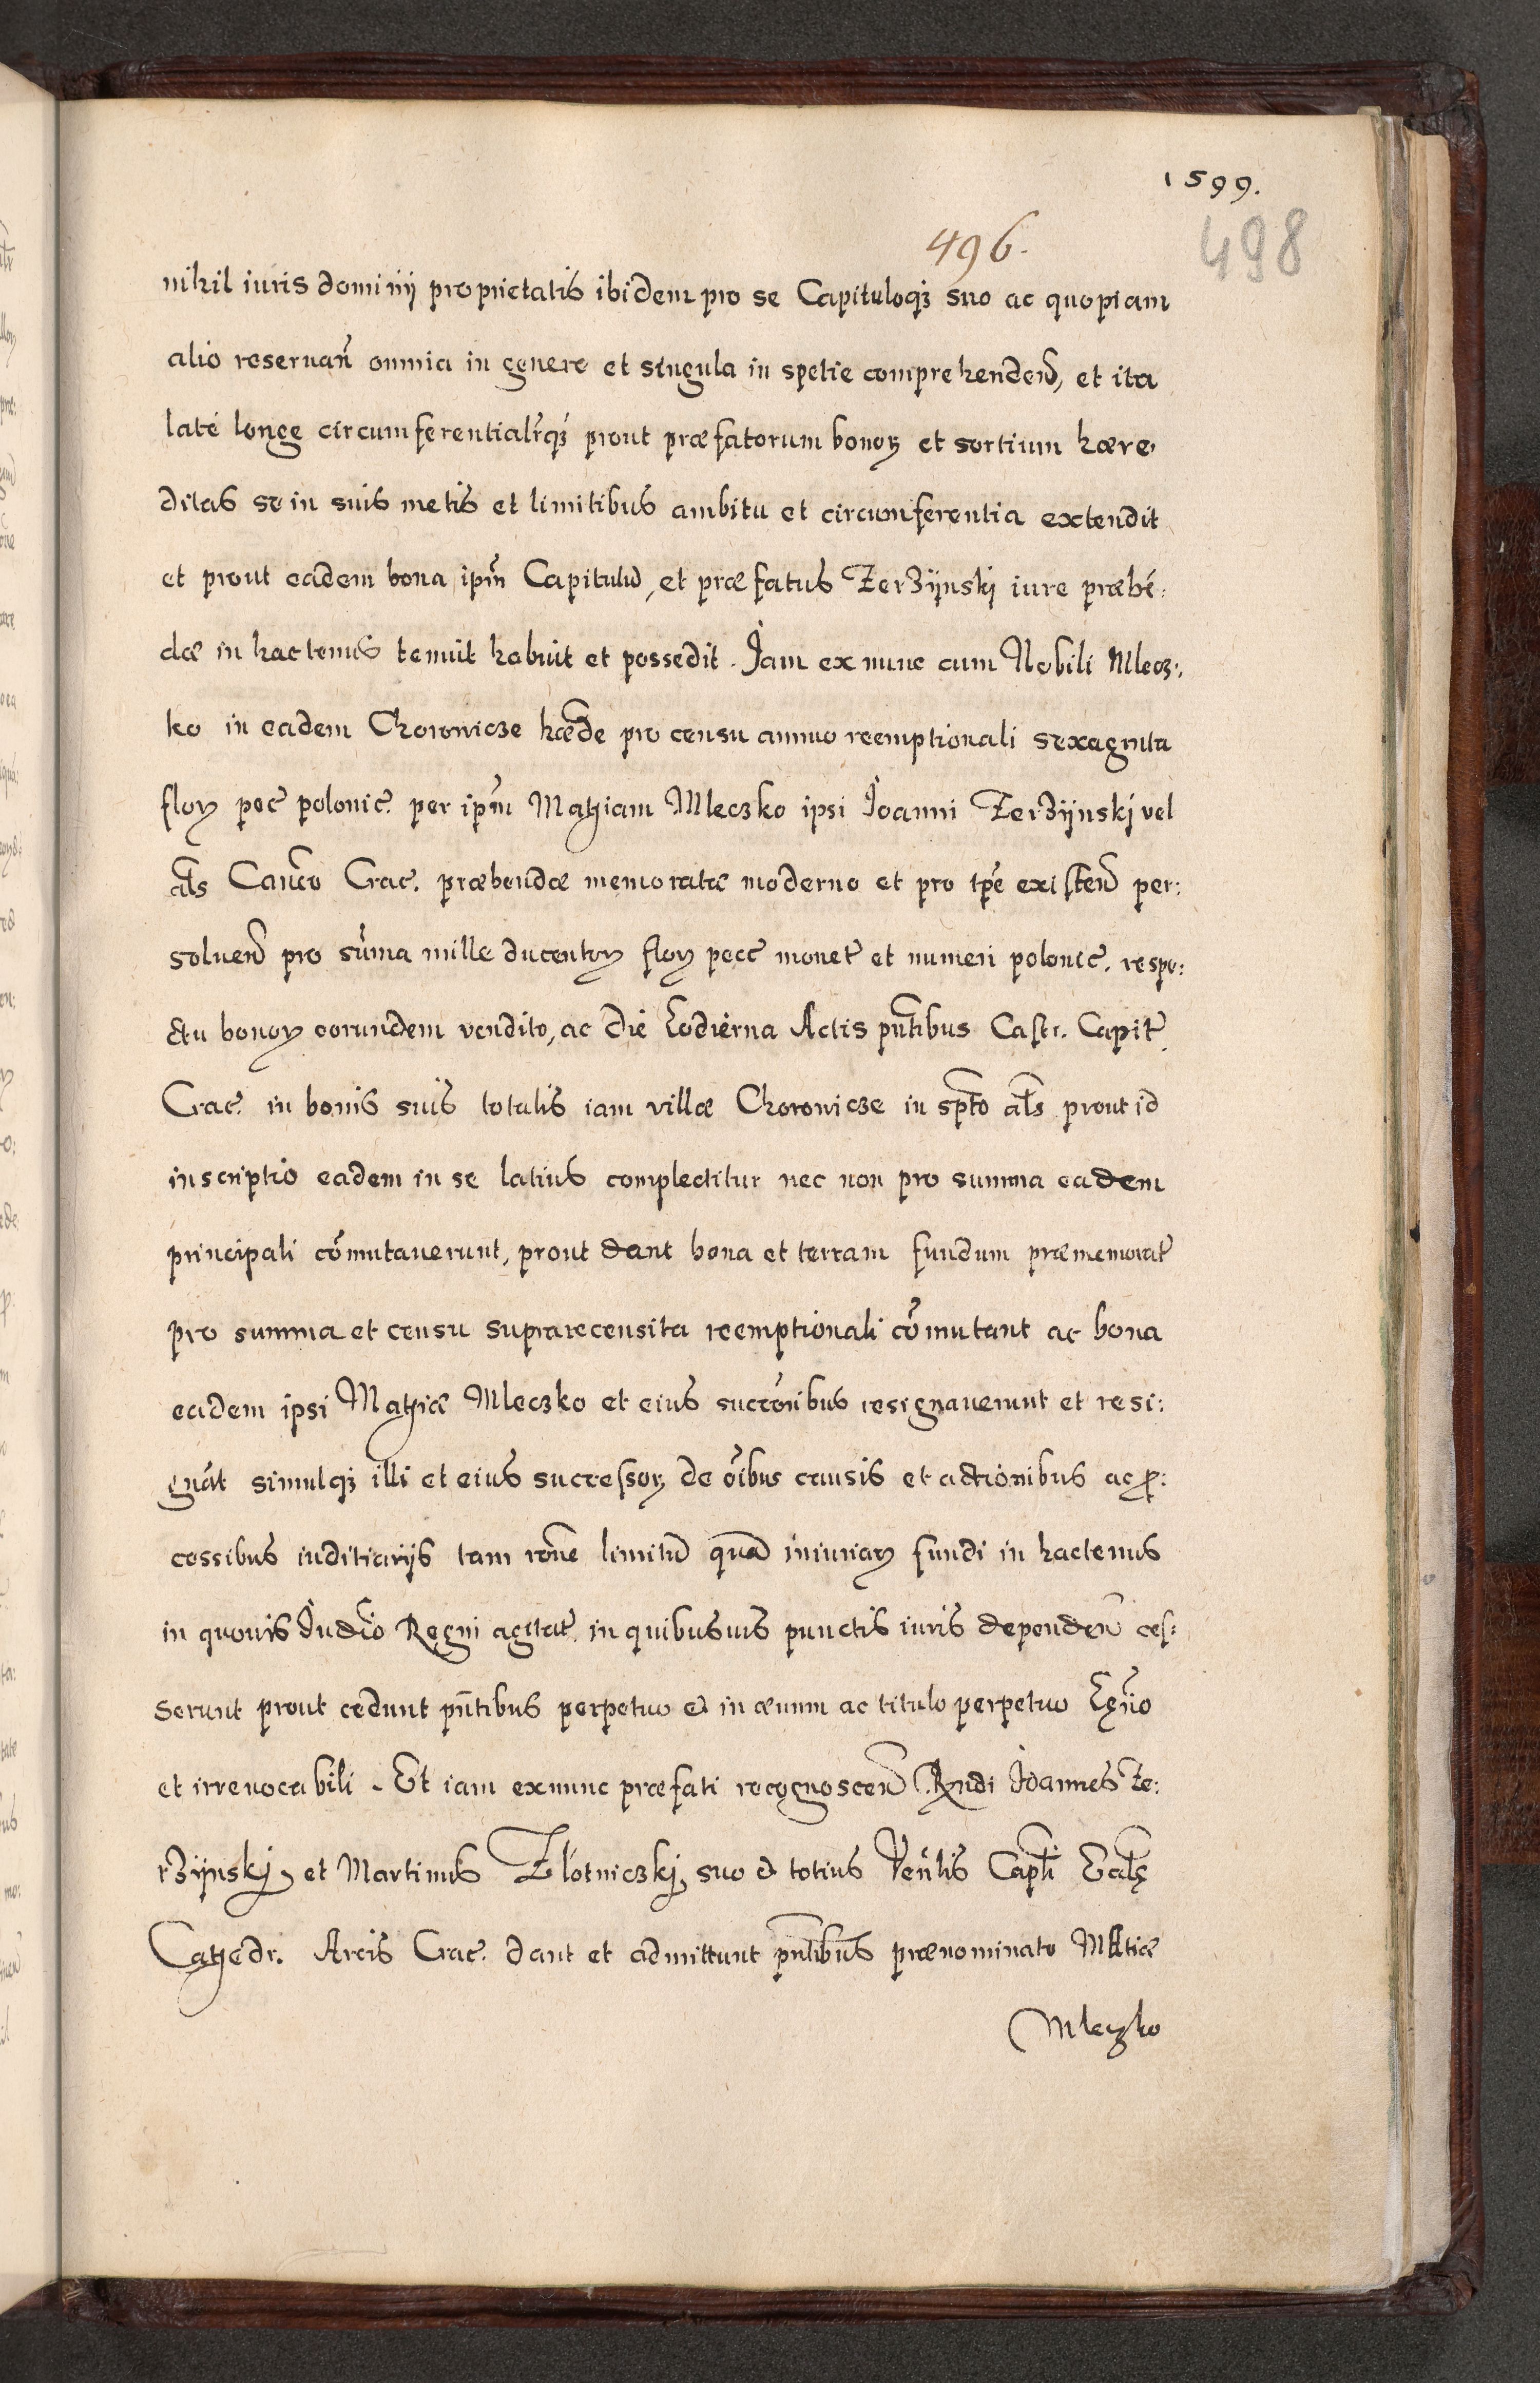 1599.
496.
498
nihil iuris dominij proprietatis ibidem pro se Capituloqȝ suo ac quopiam
alio reseruan̄ omnia in genere et singula in spetie comprehenden̄, et ita
laté longe circumferentialr̄qȝ prout præfatorum bonoꝝ et sortium hære,
ditas se in suis metis et limitibus ambitu et circumferentia extendit
et prout eadem bona ipm̄ Capitulū, et præfatus Zerzijnskj iure præbē:
dæ in hactenus tenuit habuit et possedit. Jam ex nunc cum Nobili Mlecz:,
ko in eadem Choronicze hæde pro censu annuo reemptionali sexaginta
floꝝ pec̄ polonic̄. per ipm̄ Mathiam Mleczko ipsi Joanni Zerzijnskj vel
al̄s Canco Crac̄. præbendæ memoratæ moderno et pro tp̄e existen̄ per:
soluen̄ pro sūma mille ducentoꝝ floꝝ pecc̄ monet̄ et numeri polonic̄. respe:
ctu bonoꝝ eorundem vendito, ac die hodierna Actis pn̄tibus Castr. Capit̄.
Crac̄. in bonis suis totalis iam villæ Choronicze in sp̄to al̄s prout id
inscriptio eadem in se latius complectitur nec non pro summa eadem
principali cōmutauerunt, prout dant bona et terram fundum præmemorat̄
pro summa et censu suprarecensita reemptionali cōmutant ac bona
eadem ipsi Mathiæ Mleczko et eius succōribus resignauerunt et resi:
gnāt simulqȝ illi et eius successoꝝ de oībus causis et actionibus ac ꝓ:
cessibus iuditiarijs tam rōne limitū quā iniuriaꝝ fundi in hactenus
in quouis Judīo Regni agitat̄. in quibusuis punctis iuris dependen̄ ces:
serunt prout cedunt pn̄tibus perpetuo et in æuum ac titulo perpetuo
et irreuocabili. Et iam ex nunc præfati recognoscen̄ Rn̄di Joannes Ze:
rzijnskj, et Martinus Zlotniczkj, suo et totius Ven̄lis Capl̄i Eccl̄ę
Cathedr. Arcis Crac̄. dant et admittunt pn̄tibus prænominato Matiæ
Mleczko